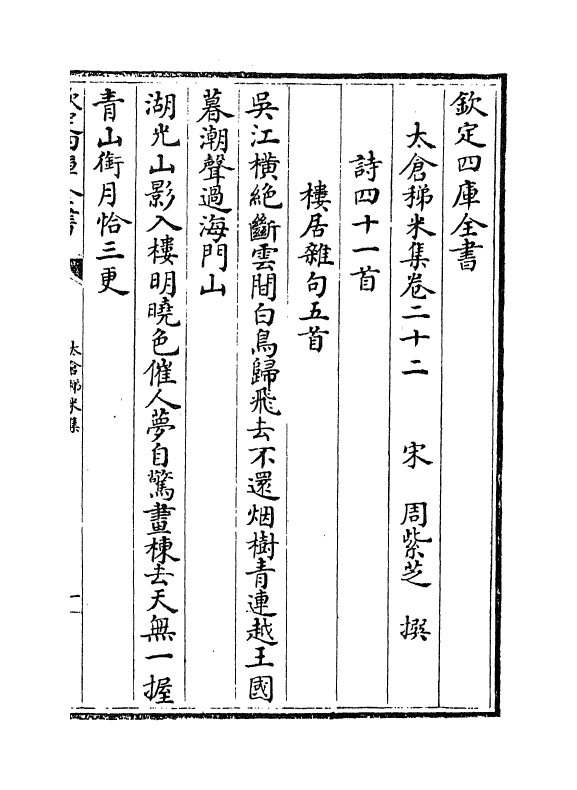 欽定四庫全書
太倉稊米集卷二十二 宋 周紫芝 撰
詩四十一首
樓居雜句五首
吳江橫絶斷雲間白鳥歸飛去不還烟樹青連越王國
暮潮聲過海門山
湖光山影入樓明曉色催人夢自驚畫棟去天無一握
青山銜月恰三更
欽定四庫全書
太倉稊米集
一